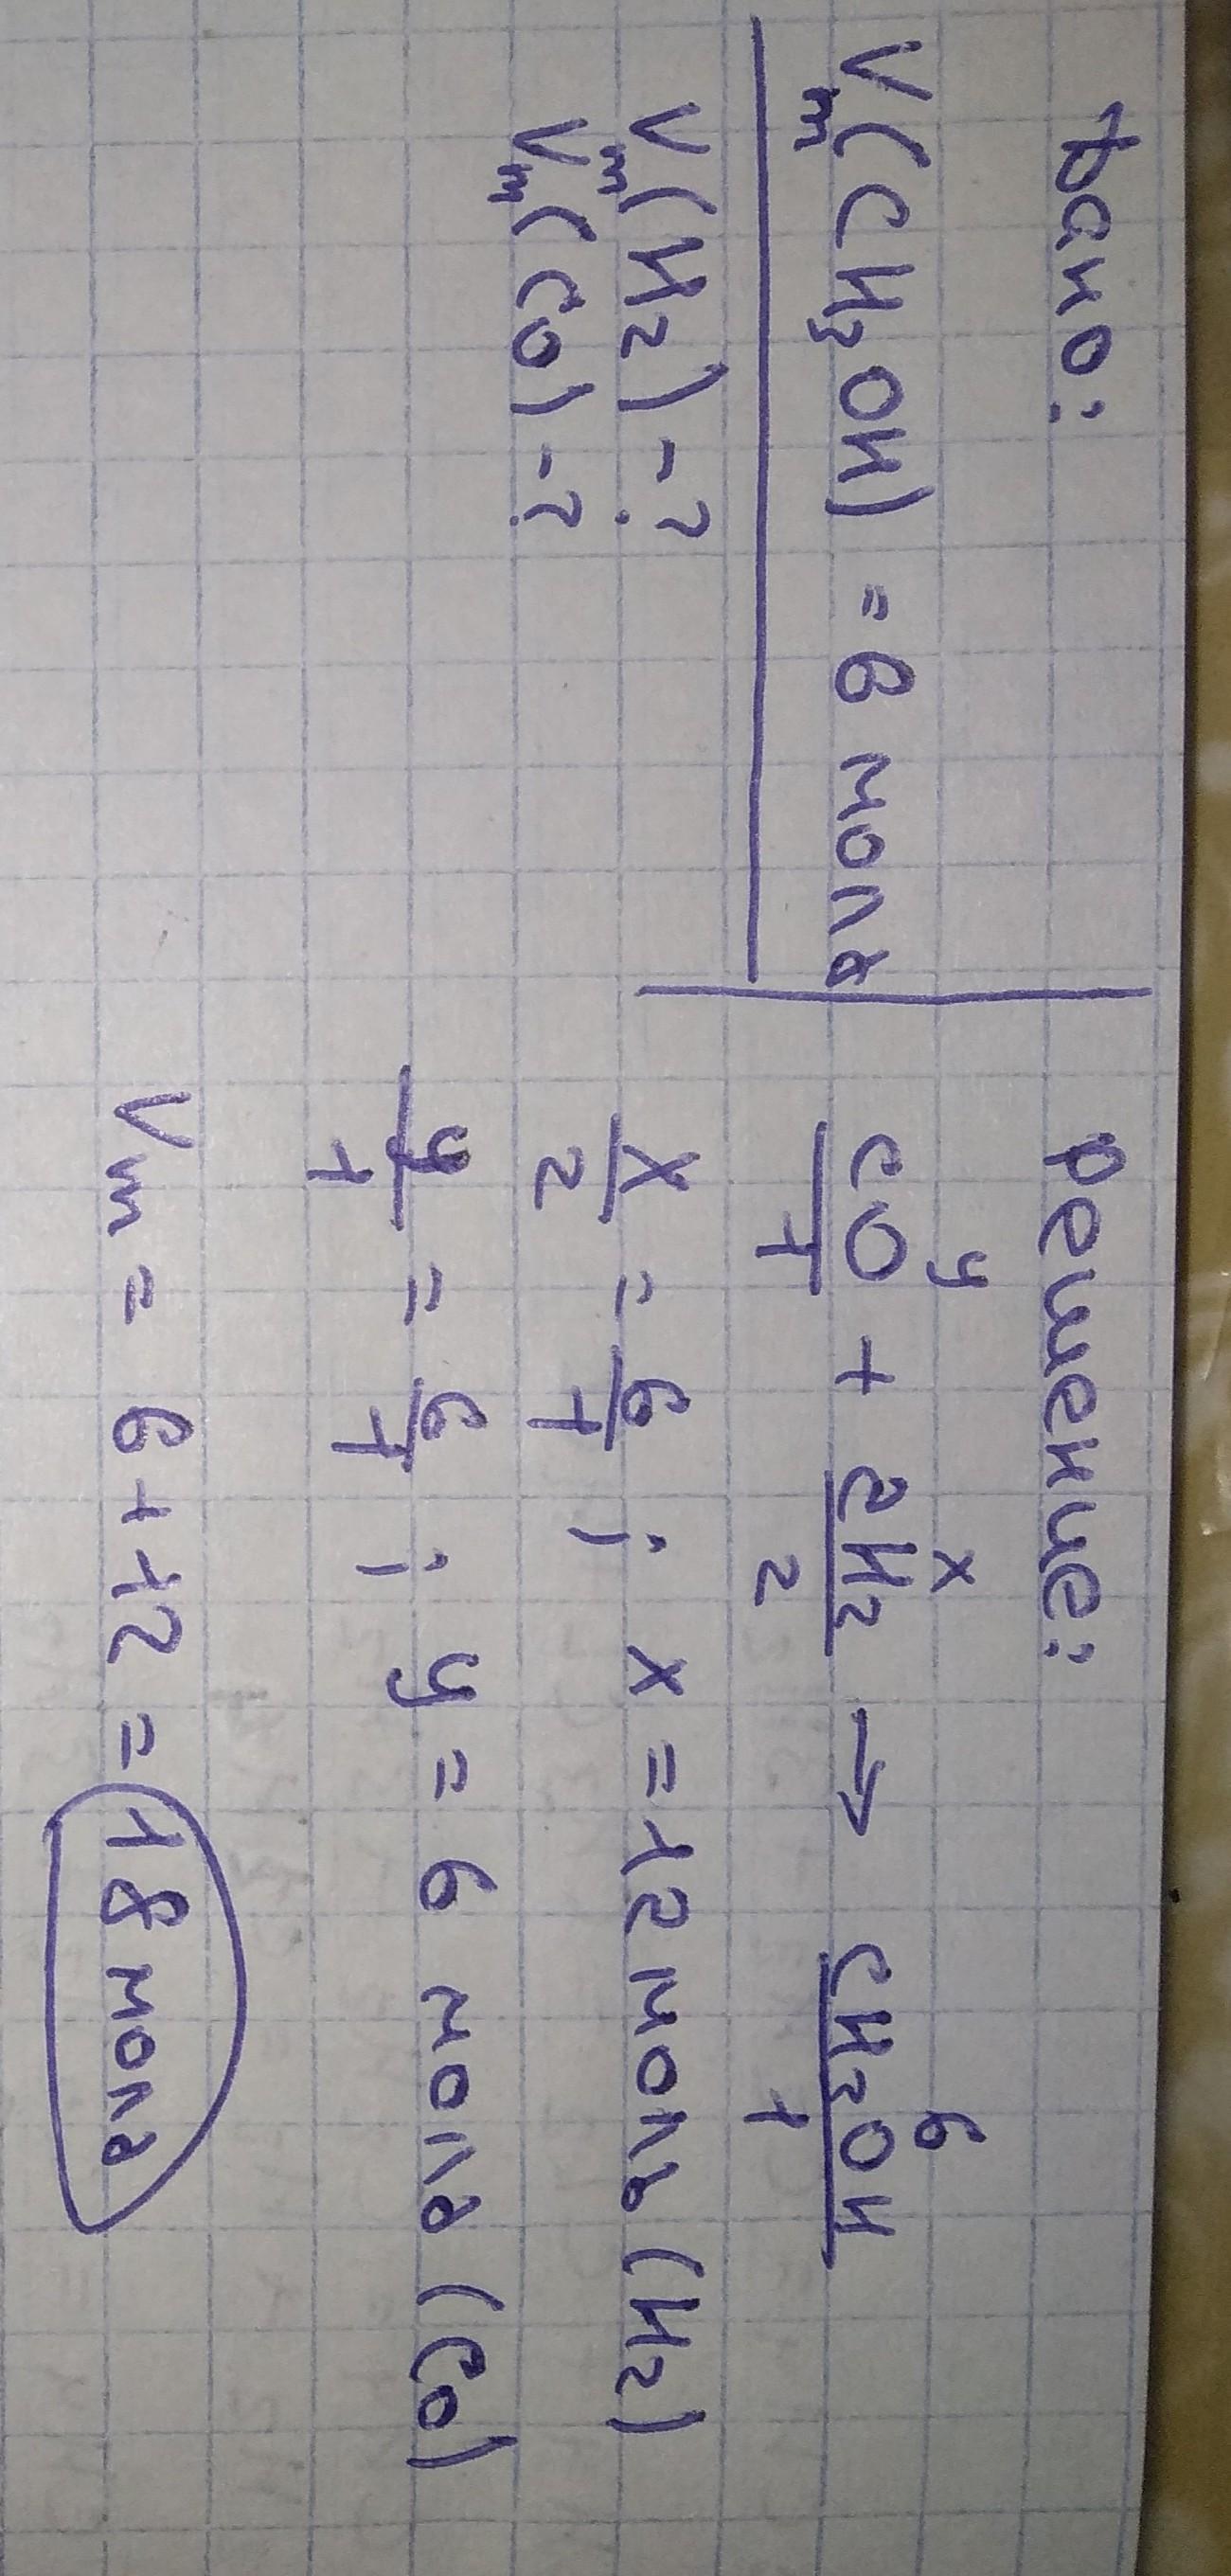 Дано:
Vm(CH3OH) = 6 моль
Vm(H2) - ?
Vm(CO) - ?
Решение:
y x 6
CO + 2H2 → CH3OH
1 2 1
x/2 = 6/1 ; x = 12 моль (H2)
y/1 = 6/1 ; y = 6 моль (CO)
Vm = 6 + 12 = 18 моль